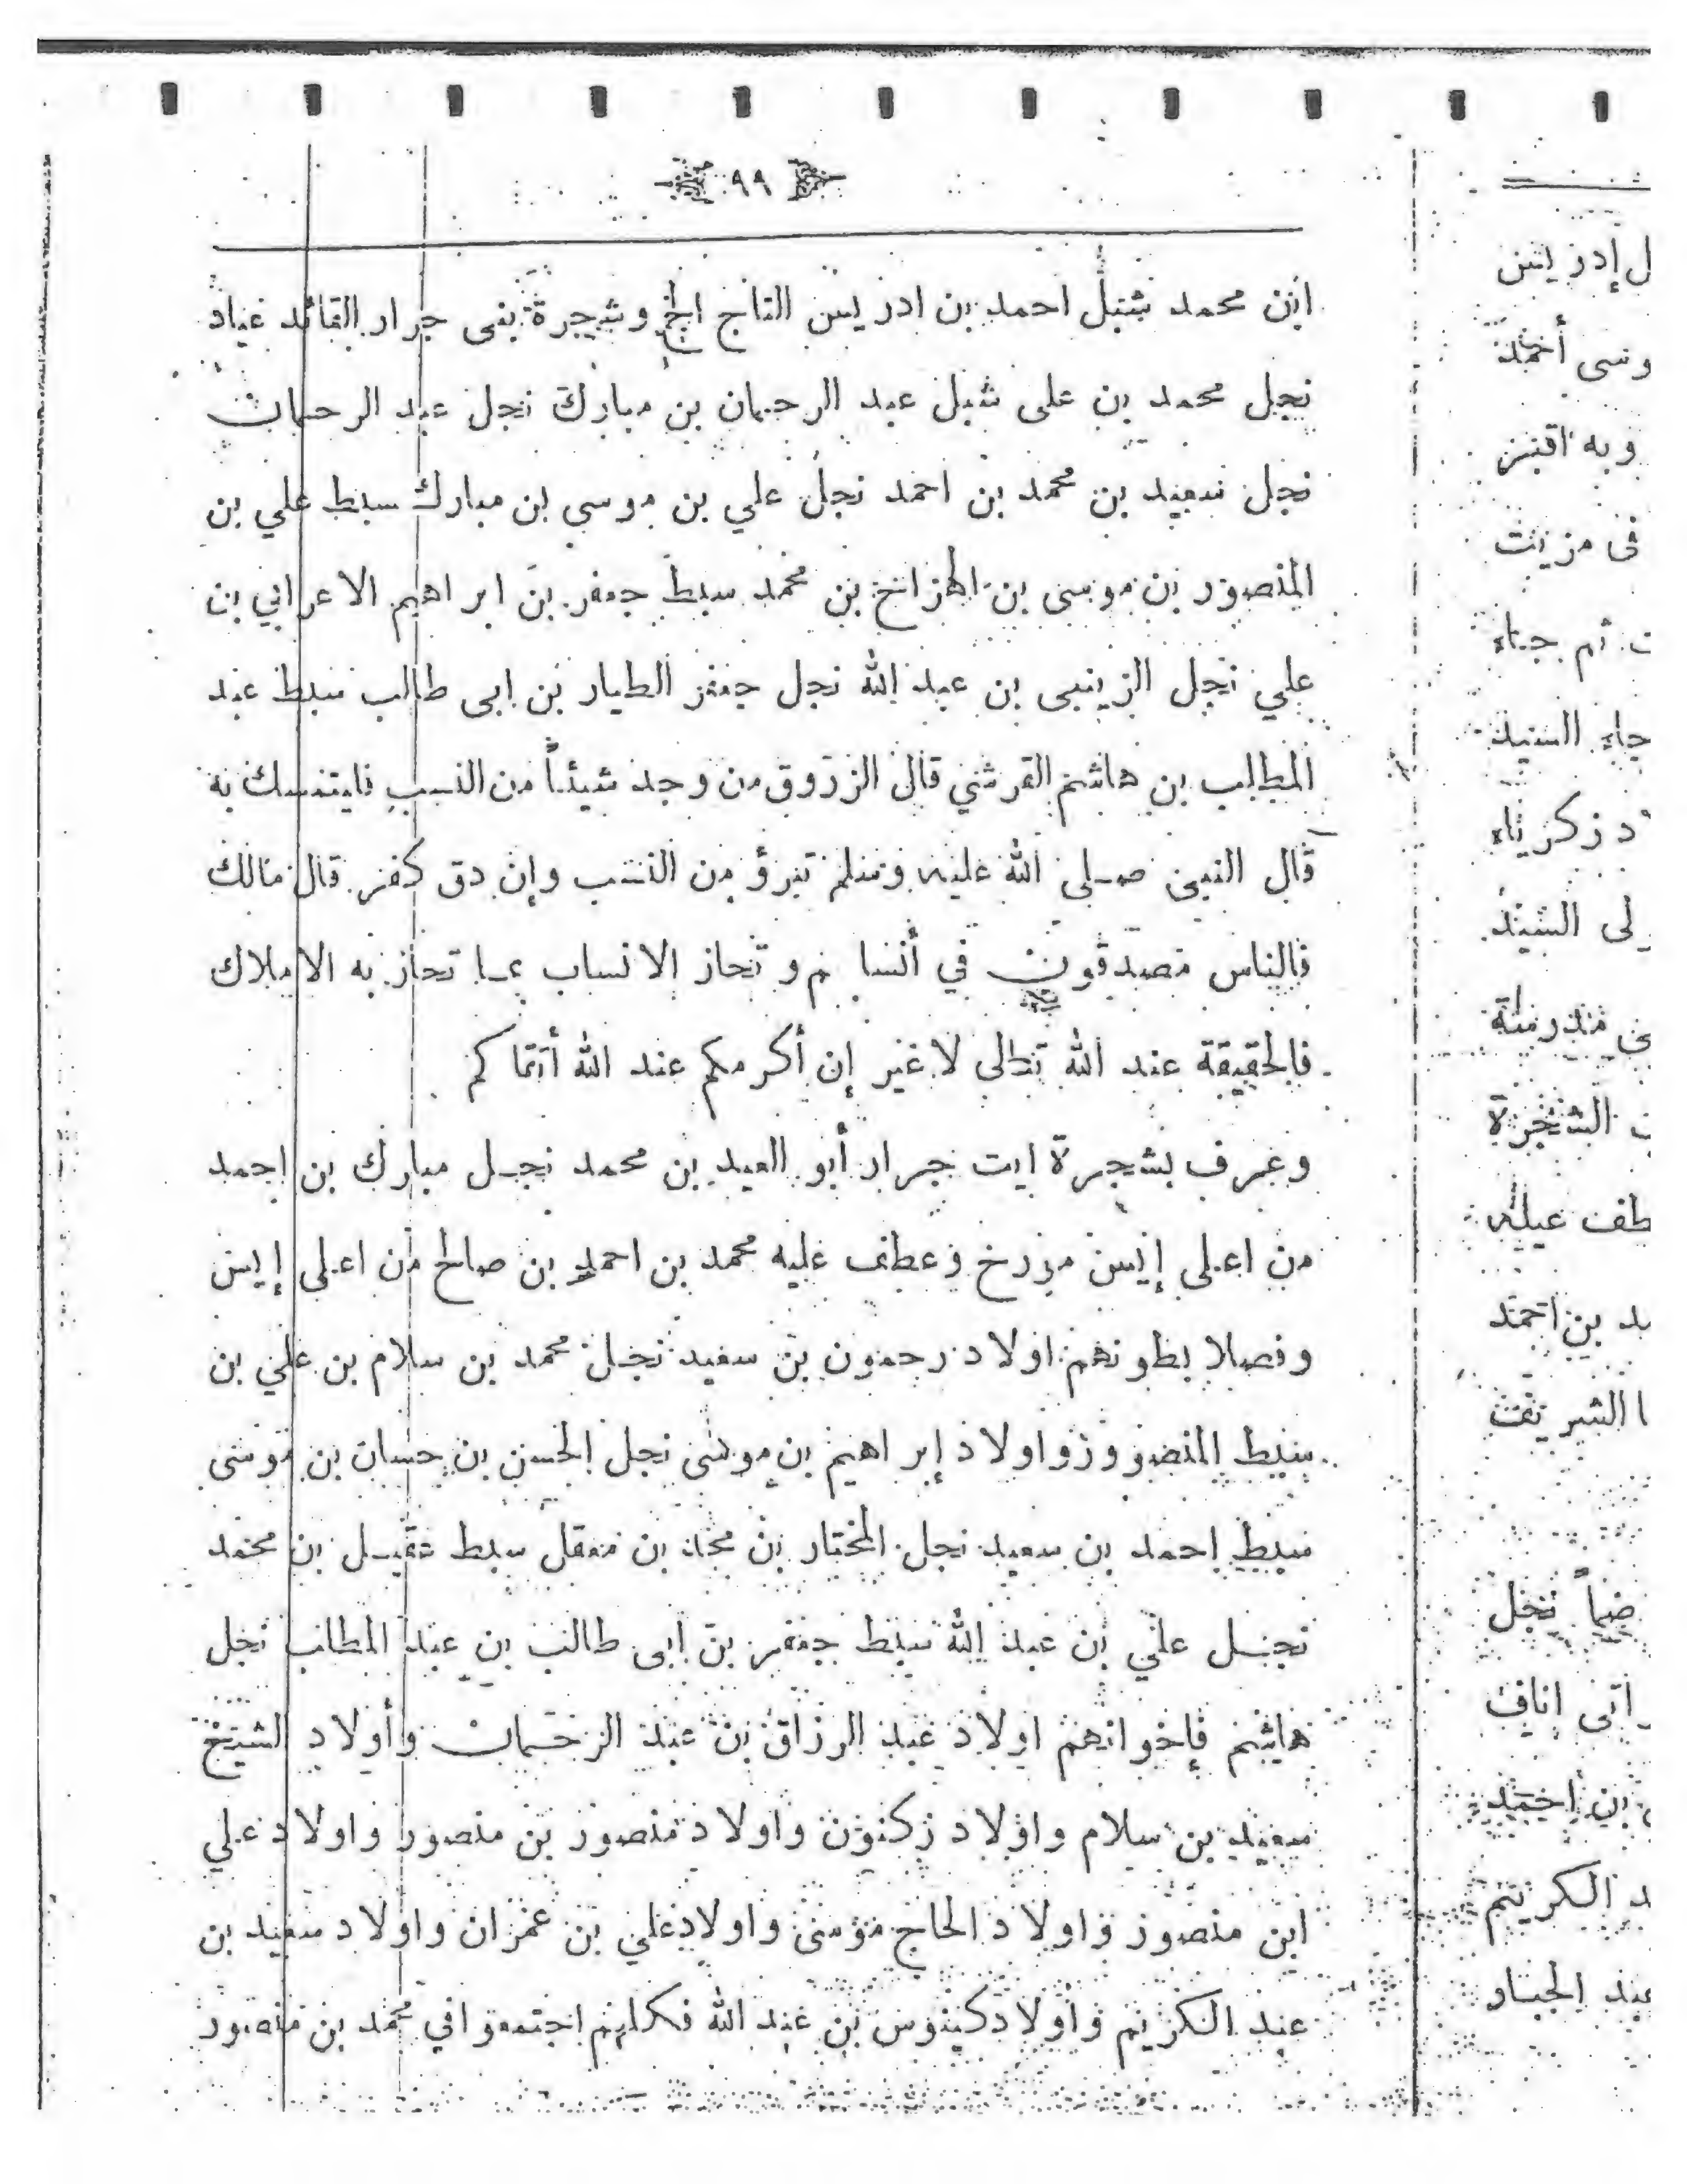 ٩٩
ابن محمد شبل احمد بن ادريس التاج الخ وشجرة بنى جرار القائد عياد
نجل محمد بن على شبل عبد الرحمان بن مبارك نجل عبد الرحمان
نجل سعيد بن محمد بن احمد نجل علي بن موسى بن مبارك سبط علي بن
المنصور بن موسى بن الهزاخ بن محمد سبط جعفر بن ابراهيم الاعرابي بن
علي نجل الزينبى بن عبد الله نجل جعفر الطيار بن ابى طالب سبط عبد
المطلب بن هاشم القرشي قال الزروق من وجد شيئاً من النسب فليتمسك به
قال النبي صلى الله عليه وسلم تبرؤ من النسب وإن دق كفر قال مالك
فالناس مصدقون في أنسا م وتحاز الانساب بما تحاز به الاملاك
فالحقيقة عند الله تعالى لا غير إن أكرمكم عند الله أتقاكم
وعرف بشجرة ايت جرار أبو العيد بن محمد نجل مبارك بن احمد
من اعلى إيس مورخ وعطف عليه محمد بن احمد بن صالح من اعلى إيس
وفصلا بطونهم اولاد رحمون بن سعيد نجل محمد بن سلام بن علي بن
سبط المنصور وزو اولاد إبراهيم بن موسى نجل الحسن بن حسان بن موسى
سبط احمد بن سعيد نجل المختار بن محمد بن معقل سبط عقيل بن محمد
نجل علي بن عبد الله سبط جعفر بن ابى طالب بن عبد المطلب نجل
هاشم فإخوانهم اولاد عبد الرزاق بن عبد الرحمان وأولاد الشيخ
سعيد بن سلام واولاد زكنون واولاد منصور بن منصور واولاد علي
ابن منصور واولاد الحاج موسى واولاد علي بن عمران واولاد سعيد بن
عبد الكريم واولاد كينوس بن عبد الله فكلهم اجتمعو افي محمد بن منصور
ل إدريس
وسى أحمد
وبه اقبز
فى مزيت
ت أم جاء
جاء السيد
د زكرياء
لى السيد
ي مدرسة
ب الشجرة
طف عيله
مد بن احمد
ا الشريفة
ضاً نجل
بن أحمد
د الكريم
عبد الجبار